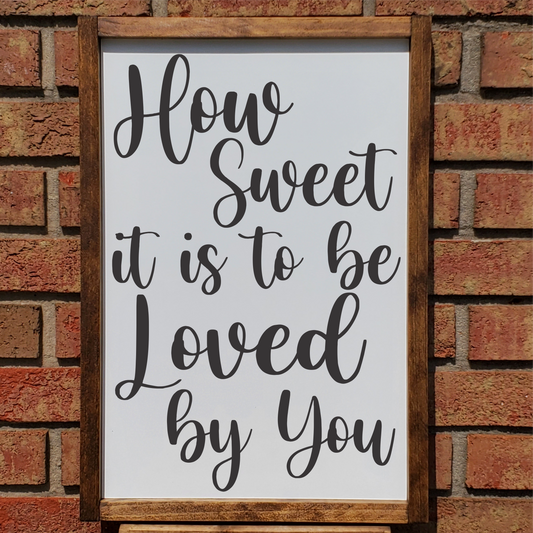 How
Sweet
it is to be
Loved
by You